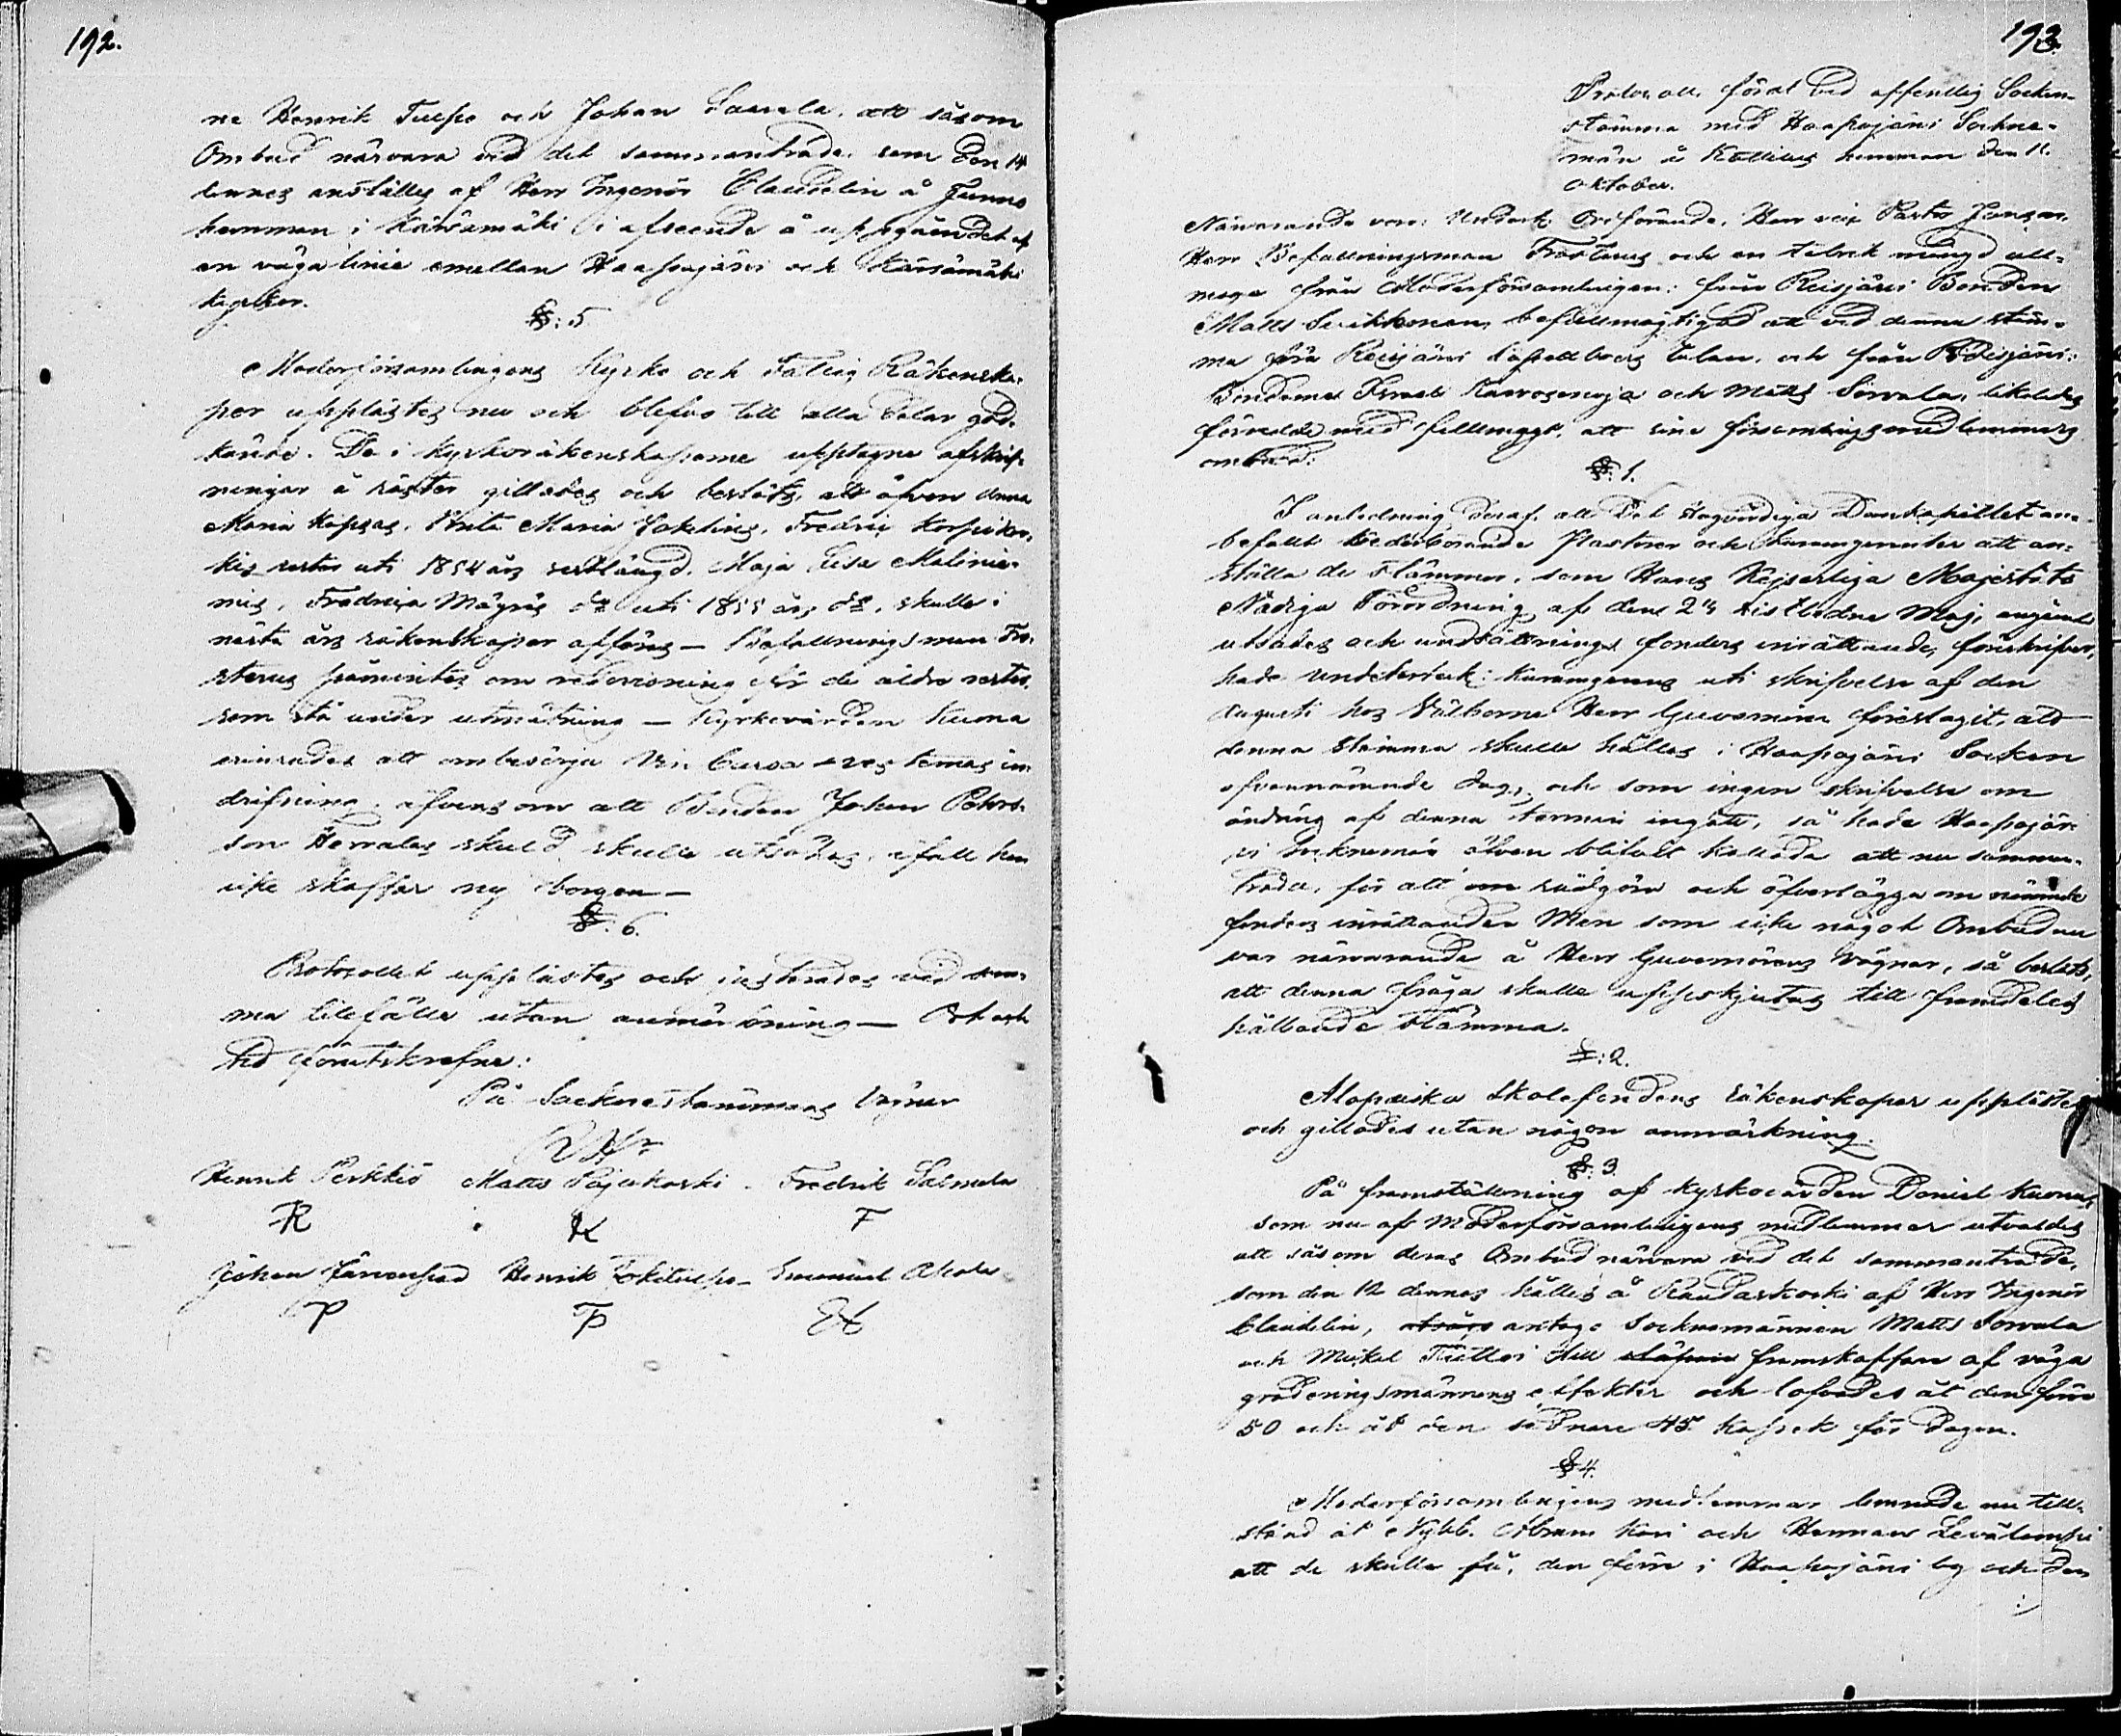 192.
ne Henrik Tulpo och Johan Saarela, att såsom
Ombud närvara vid det sammanträde, som den 14
dennes anställes af Herr Ingeniör Claudelin å Junno
hemman i Kärsämäki i afseende å uppgåendet af
en väga linie emellan Haapajärvi och Kärsämäki
kyrkor.
§: 5
Moderförsamlingens Kyrko och Fattig Räkenska-
per upplästes nu och blefvo till alla delar god-
kände. De i kyrkoräkenskaperne upptagne afskrif-
ningar å räster gillades och beslöts, att äfven Anna
Maria Kapsas, Maria Jokelins, Fredric
rester uti 1854 års restlängd, Maja Lisa Malinie-
mis, Fredrica Mägräs do uti 1855 års do, skulle i
nästa års räkenskaper afföras — Befallningsman Fro-
sterus påmintes om redovisning för de äldre rester,
som stå under utmätning — Kyrkovärden Kuona
erinrades att ombesörja Vin Cassa resternas in-
drifning, äfvens om att Bonden Johan Pehrs-
son skuld skulle utsökas, ifall han
icke skaffar ny borgen —
§: 6.
Protocollet upplästes och justerades vid sam-
ma tillfälle utan anmärkning — Ort och
tid förutskrefne:
På Sockne stämmans vägnar
Henrik Perkkiö Matts Pajukoski Fredrik Salmela
Johan Järvenpää Henrik Emanuel Ahola
193.
Protocoll, fördt vid offentlig Socken-
stämma med Haapajärvi Sockne-
män å hemman den 11.
October.
Närvarande voro: Undert. Ordförande, Herr vice Pastor
Herr Befallningsman Frosterus och en talrik mängd all-
moge från Moderförsamlingen: från Reisjärvi Bonden
Matts befullmägtigad att vid denna stäm-
ma föra Reisjärvi Capellboers talan, och från Pidisjärvi:
Bönderna och Matts Sorvala, likaledes
försedde med fullmagt, att sine församlingsmedlemmars
ombud:
§: 1.
I anledning deraf, att Det Högvördiga Domkapitlet an-
befallt vederbörande Pastorer och Kommminister att an-
ställa de stämmor, som Hans Kejserliga Majestäts
Nådiga Förordning af den sistledne Maj, angående
utsädes och undsättnings fonders inrättande, föreskrifver,
hade undertecknad uti skrifvelse af den
Augusti hos Välborne Herr Guvernören föreslagit, att
denna stämma skulle hållas i Haapajärvi Socken
ofvannämnde dag, och som ingen skrifvelse om
ändring af denna termin ingått, så hade Haapajär-
vi Socknemän äfven blifvit kallade att nu samman-
träda, för att om rådgöra och öfverlägga om nämnde
fonders inrättande. Men som icke något Ombud nu
var närvarande å Herr Guvernörens vägnar, så beslöts,
att denna fråga skulle uppskjutas till framdeles
hållande stämma.
§: 2.
Alopæiska Skolefondens räkenskaper upplästes
och gillades utan någon anmärkning.
§: 3.
På framställning af kyrkovärden Daniel Kuona,
som nu af Moderförsamlingens medlemmar utvaldes
att såsom deras Ombud närvara vid det sammanträde,
som den 12 dennes hålles å Raudaskoski af Herr Ingeniör
Claudelin, antogs Socknemännen Matts Sorvala
och Mickel till framskaffare af väga
graderingsmännens effekter och lofvades åt den förre
50 och åt den sednare 45 kopek för dagen.
§ 4.
Moderförsamlingens medlemmar lemnade nu till-
stånd åt Nybb. Abram Kari och Herman Levälampi
att de skulle få, den förre i Haapajärvi by och den